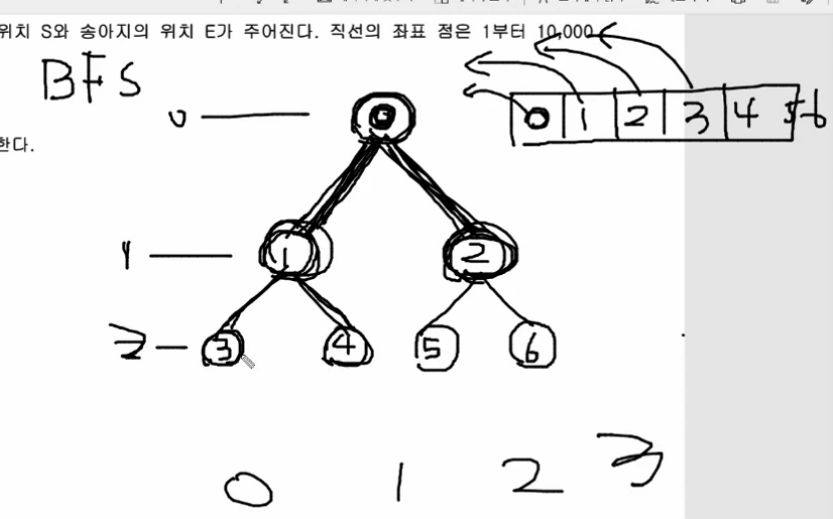 위치 S와 송아지의 위치 E가 주어진다. 직선의 좌표 점은 1부터 10,000
BFS
0 0
0 1 2 3 4 5 6
한다.
1 1 2
2 3 4 5 6
0 1 2 3